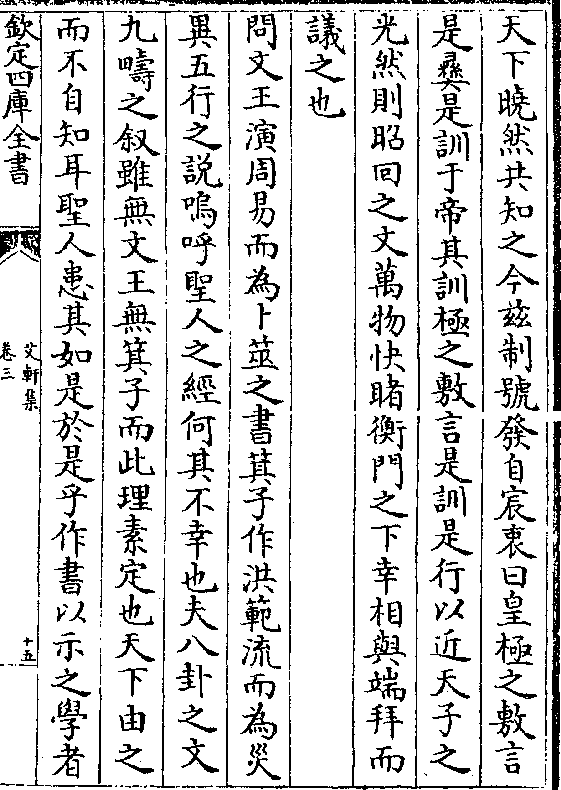 天下曉然共知之今玆制號發自宸衷曰皇極之敷言
是彞是訓于帝其訓極之敷言是訓是行以近天子之
光然則昭回之文萬物快睹衡門之下幸相與端拜而
議之也
問文王演周易而為卜筮之書箕子作洪範流而為災
異五行之說嗚呼聖人之經何其不幸也夫八卦之文
九疇之叙雖無文王無箕子而此理素定也天下由之
而不自知耳聖人患其如是於是乎作書以示之學者
欽定四庫全書
艾軒集
卷三
十五